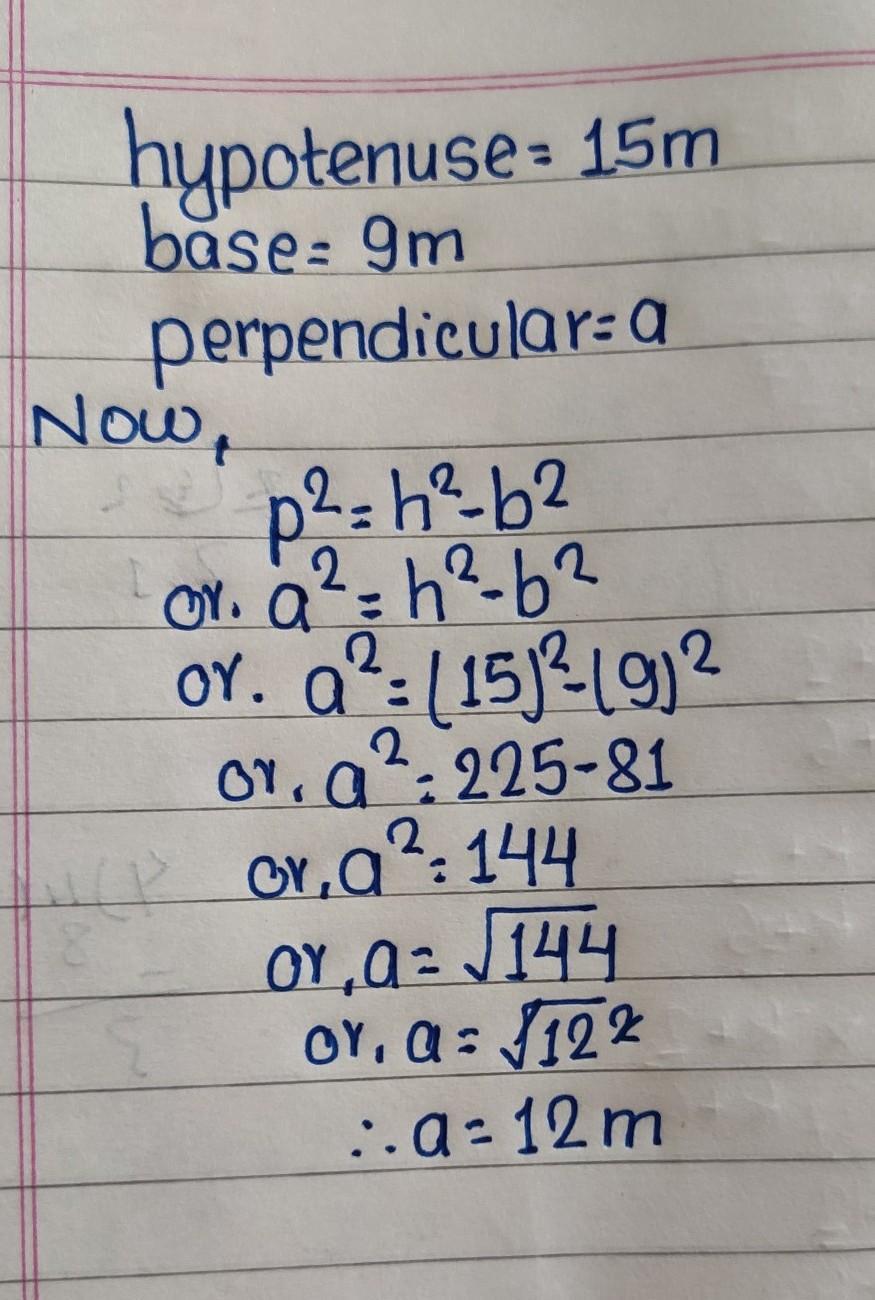 hypotenuse = 15m
base = 9m
perpendicular = a
Now,
p² = h² - b²
or. a² = h² - b²
or. a² = (15)² - (9)²
or, a² = 225 - 81
or, a² = 144
or, a = √144
or, a = √12²
∴ a = 12 m